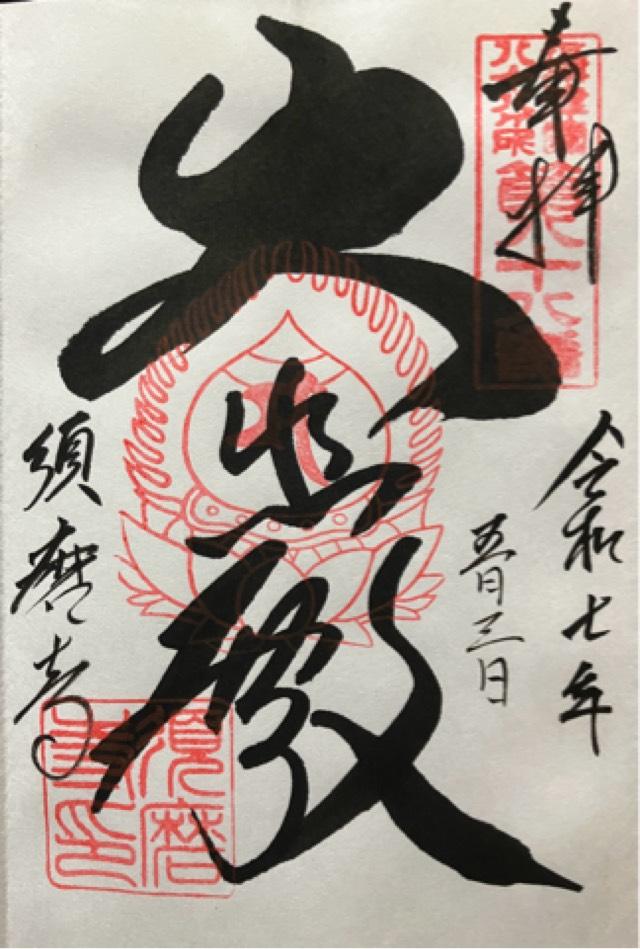 奉拝
令和七年
五月三日
大悲殿
須磨寺
須磨
寺印